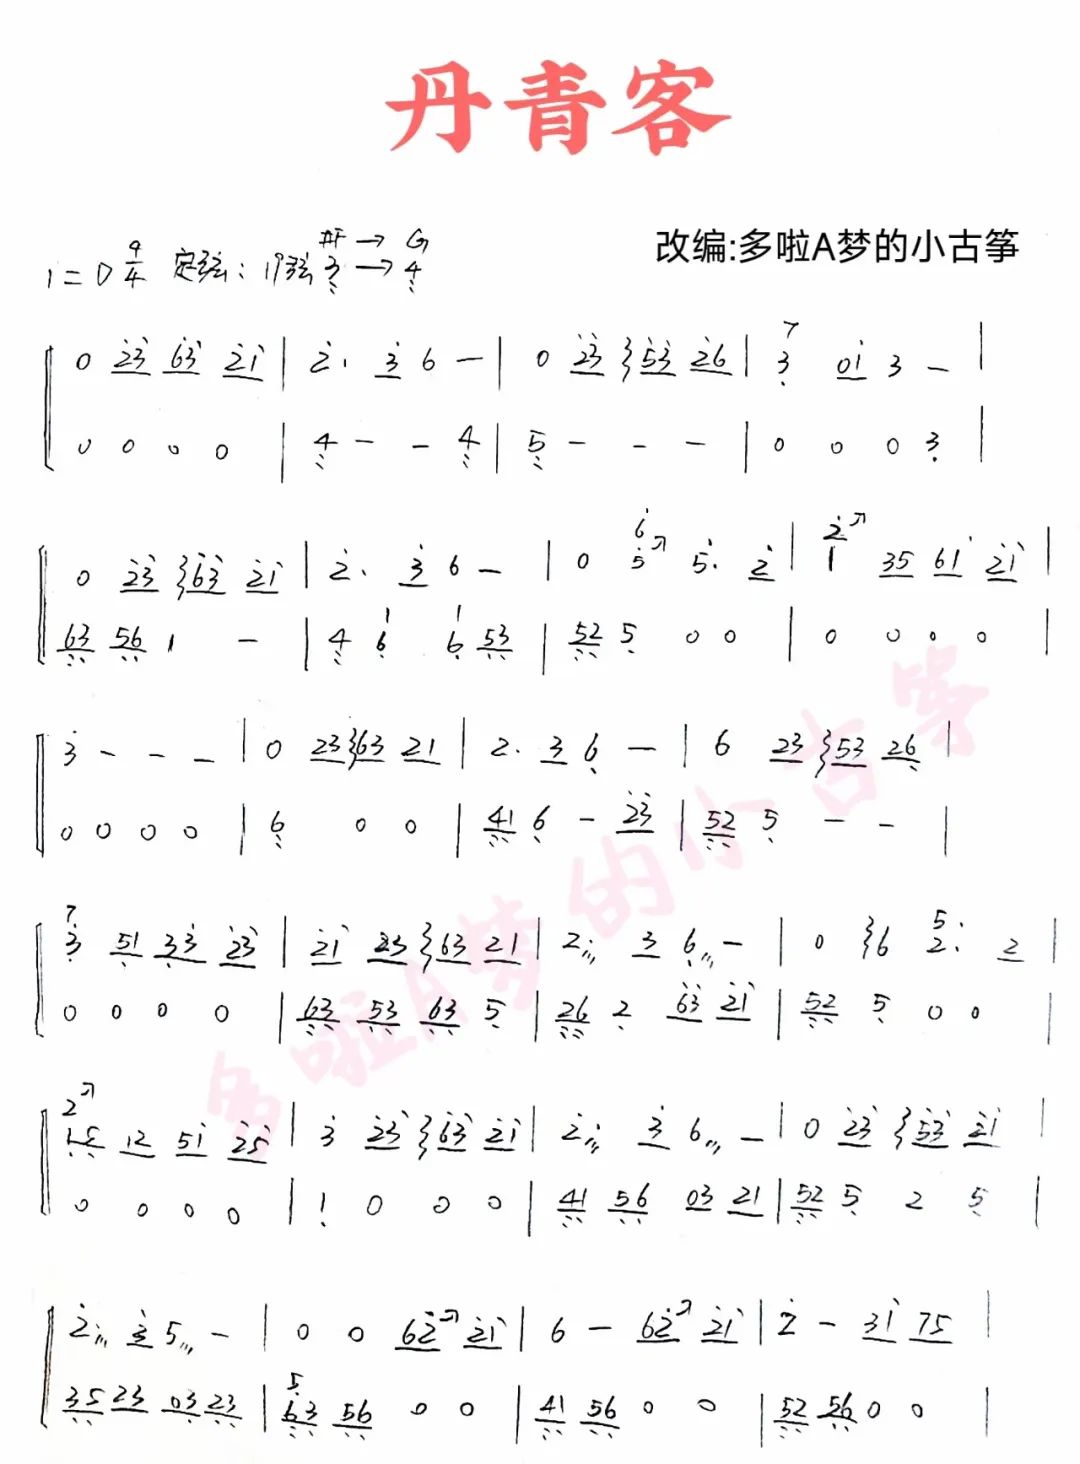 丹青客
改编:多啦A梦的小古筝
#F → G
1=D 4/4 定弦: 19弦 3 → 4
7
0 23 63 21 | 2. 3 6 - | 0 23 53 26 | 3 01 3 - |
0 0 0 0 | 4 - - 4 | 5 - - - | 0 0 0 3 |
6 2
0 23 63 21 | 2. 3 6 - | 0 5 5. 2 | 1 35 61 21 |
1 1
63 56 1 - | 4 6 6 53 | 52 5 0 0 | 0 0 0 0 |
3 - - - | 0 23 63 21 | 2. 3 6 - | 6 23 53 26 |
0 0 0 0 | 6 0 0 | 41 6 - 23 | 52 5 - - |
7 5
3 51 33 23 | 21 23 63 21 | 2 3 6 - | 0 6 2. 2 |
0 0 0 0 | 63 53 63 5 | 26 2 63 21 | 52 5 0 0 |
2
15 12 51 25 | 3 23 63 21 | 2 3 6 - | 0 23 53 21 |
0 0 0 0 | 1 0 0 0 | 41 56 03 21 | 52 5 2 5 |
2 3 5 - | 0 0 62 21 | 6 - 62 21 | 2 - 31 75 |
5
35 23 03 23 | 63 56 0 0 | 41 56 0 0 | 52 56 0 0 |
多啦A梦的小古筝